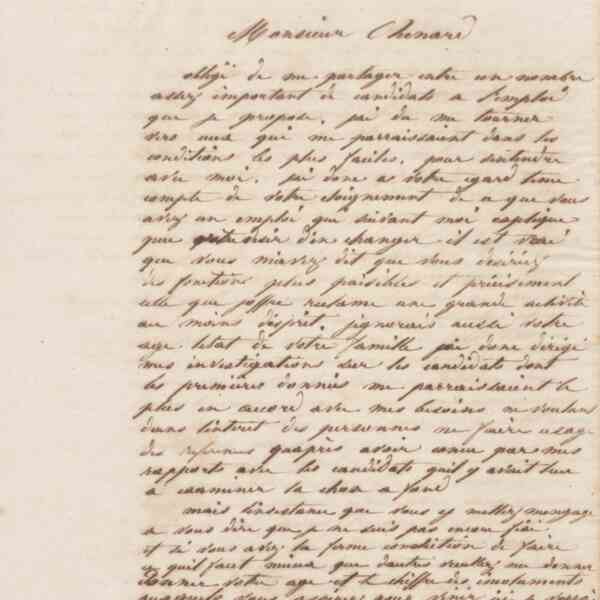 Monsieur Chenard
obligé de me partager entre un nombre
assez important de candidats a l'emploi
que je propose, j'ai du me tourner
vers ceux qui me parraissaient dans les
conditions les plus faciles, pour s'entendre
avec moi, j'ai donc a votre egard tenu
compte de votre eloignement de ce que vous
avez un emploi qui suivant moi explique
peu votre desir d'en changer il est vrai
que vous m'avez dit que vous désiriez
des fonctions plus paisibles et précisement
celle que j'offre reclame une grande activité
au moins d'esprit. j'ignorais aussi votre
age l'etat de votre famille j'ai donc dirigé
mes investigations sur les candidats dont
les premieres données me parraissaient le
plus en accord avec mes besoins ne voulant
dans l'interet des personnes ne faire usage
des references qu'apres avoir connu par mes
rapports avec les candidats qu'il y avait lieu
a examiner la chose a fond
mais l'insistance que vous y mettez m'engage
a vous dire que je ne suis pas encore fixé
et si vous avez la ferme conviction de faire
ce qu'il faut mieux que d'autres veuillez me donner
donner votre age et le chiffre des emoluments
auxquels vous